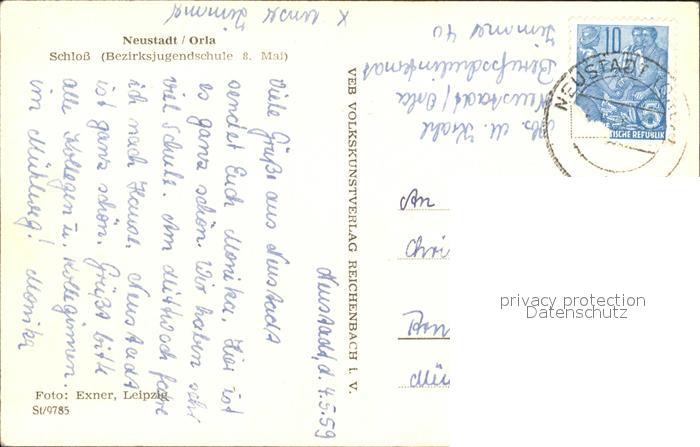 x unser Zimmer
Neustadt / Orla
Schloß (Bezirksjugendschule 8. Mai)
Neustadt, d. 4.5.59
Viele Grüße aus Neustadt
sendet Euch Monika. Hier ist
es ganz schön. Wir haben sehr
viel Schule. Am Mittwoch fahre
ich nach Hause. Neustadt
ist ganz schön. Grüßt bitte
alle Kollegen u. Kolleginnen.
im Mühlweg! Monika
Foto: Exner, Leipzig
St/9785
VEB VOLKSKUNSTVERLAG REICHENBACH i. V.
Abs. M. Krahl
Neustadt/Orla
Berufsschulinternat
Zimmer 40
10
TISCHE REPUBLIK
NEUSTADT
An
Chri
Mün
privacy protection
Datenschutz